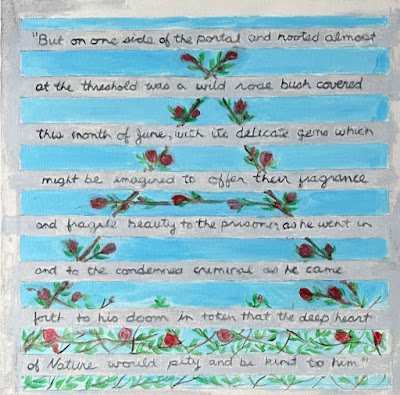 "But on one side of the portal and rooted almost
at the threshold was a wild rose bush covered
this month of June, with its delicate gems which
might be imagined to offer their fragrance
and fragile beauty to the prisoner as he went in
and to the condemned criminal as he came
forth to his doom in token that the deep heart
of Nature would pity and be kind to him"